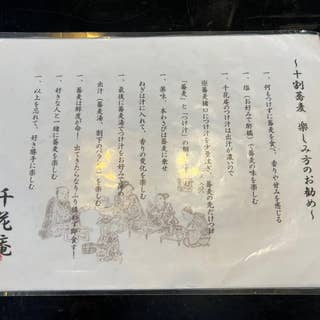 〜十割蕎麦 楽しみ方のお勧め〜
一、何もつけずに蕎麦を食べ、香りや甘みを感じる
一、塩(お好みで酢橘)で蕎麦の味を楽しむ
一、千花庵のつけ汁は出汁が濃いので
※蕎麦猪口につけ汁を少量注ぎ、蕎麦の先だけつける
「蕎麦」と「つけ汁」の
一、薬味、本わさびは蕎麦に乗せ
ねぎは汁に入れて、香りの変化を楽しむ
一、最後に蕎麦湯でつけ汁をお好みで
出汁(蕎麦湯、割下の
一、蕎麦は鮮度が命!出てきたらなりふり構わず即食す!
一、好きな人と一緒に蕎麦を楽しむ
一、以上を忘れて、好き勝手に楽しむ
千花庵